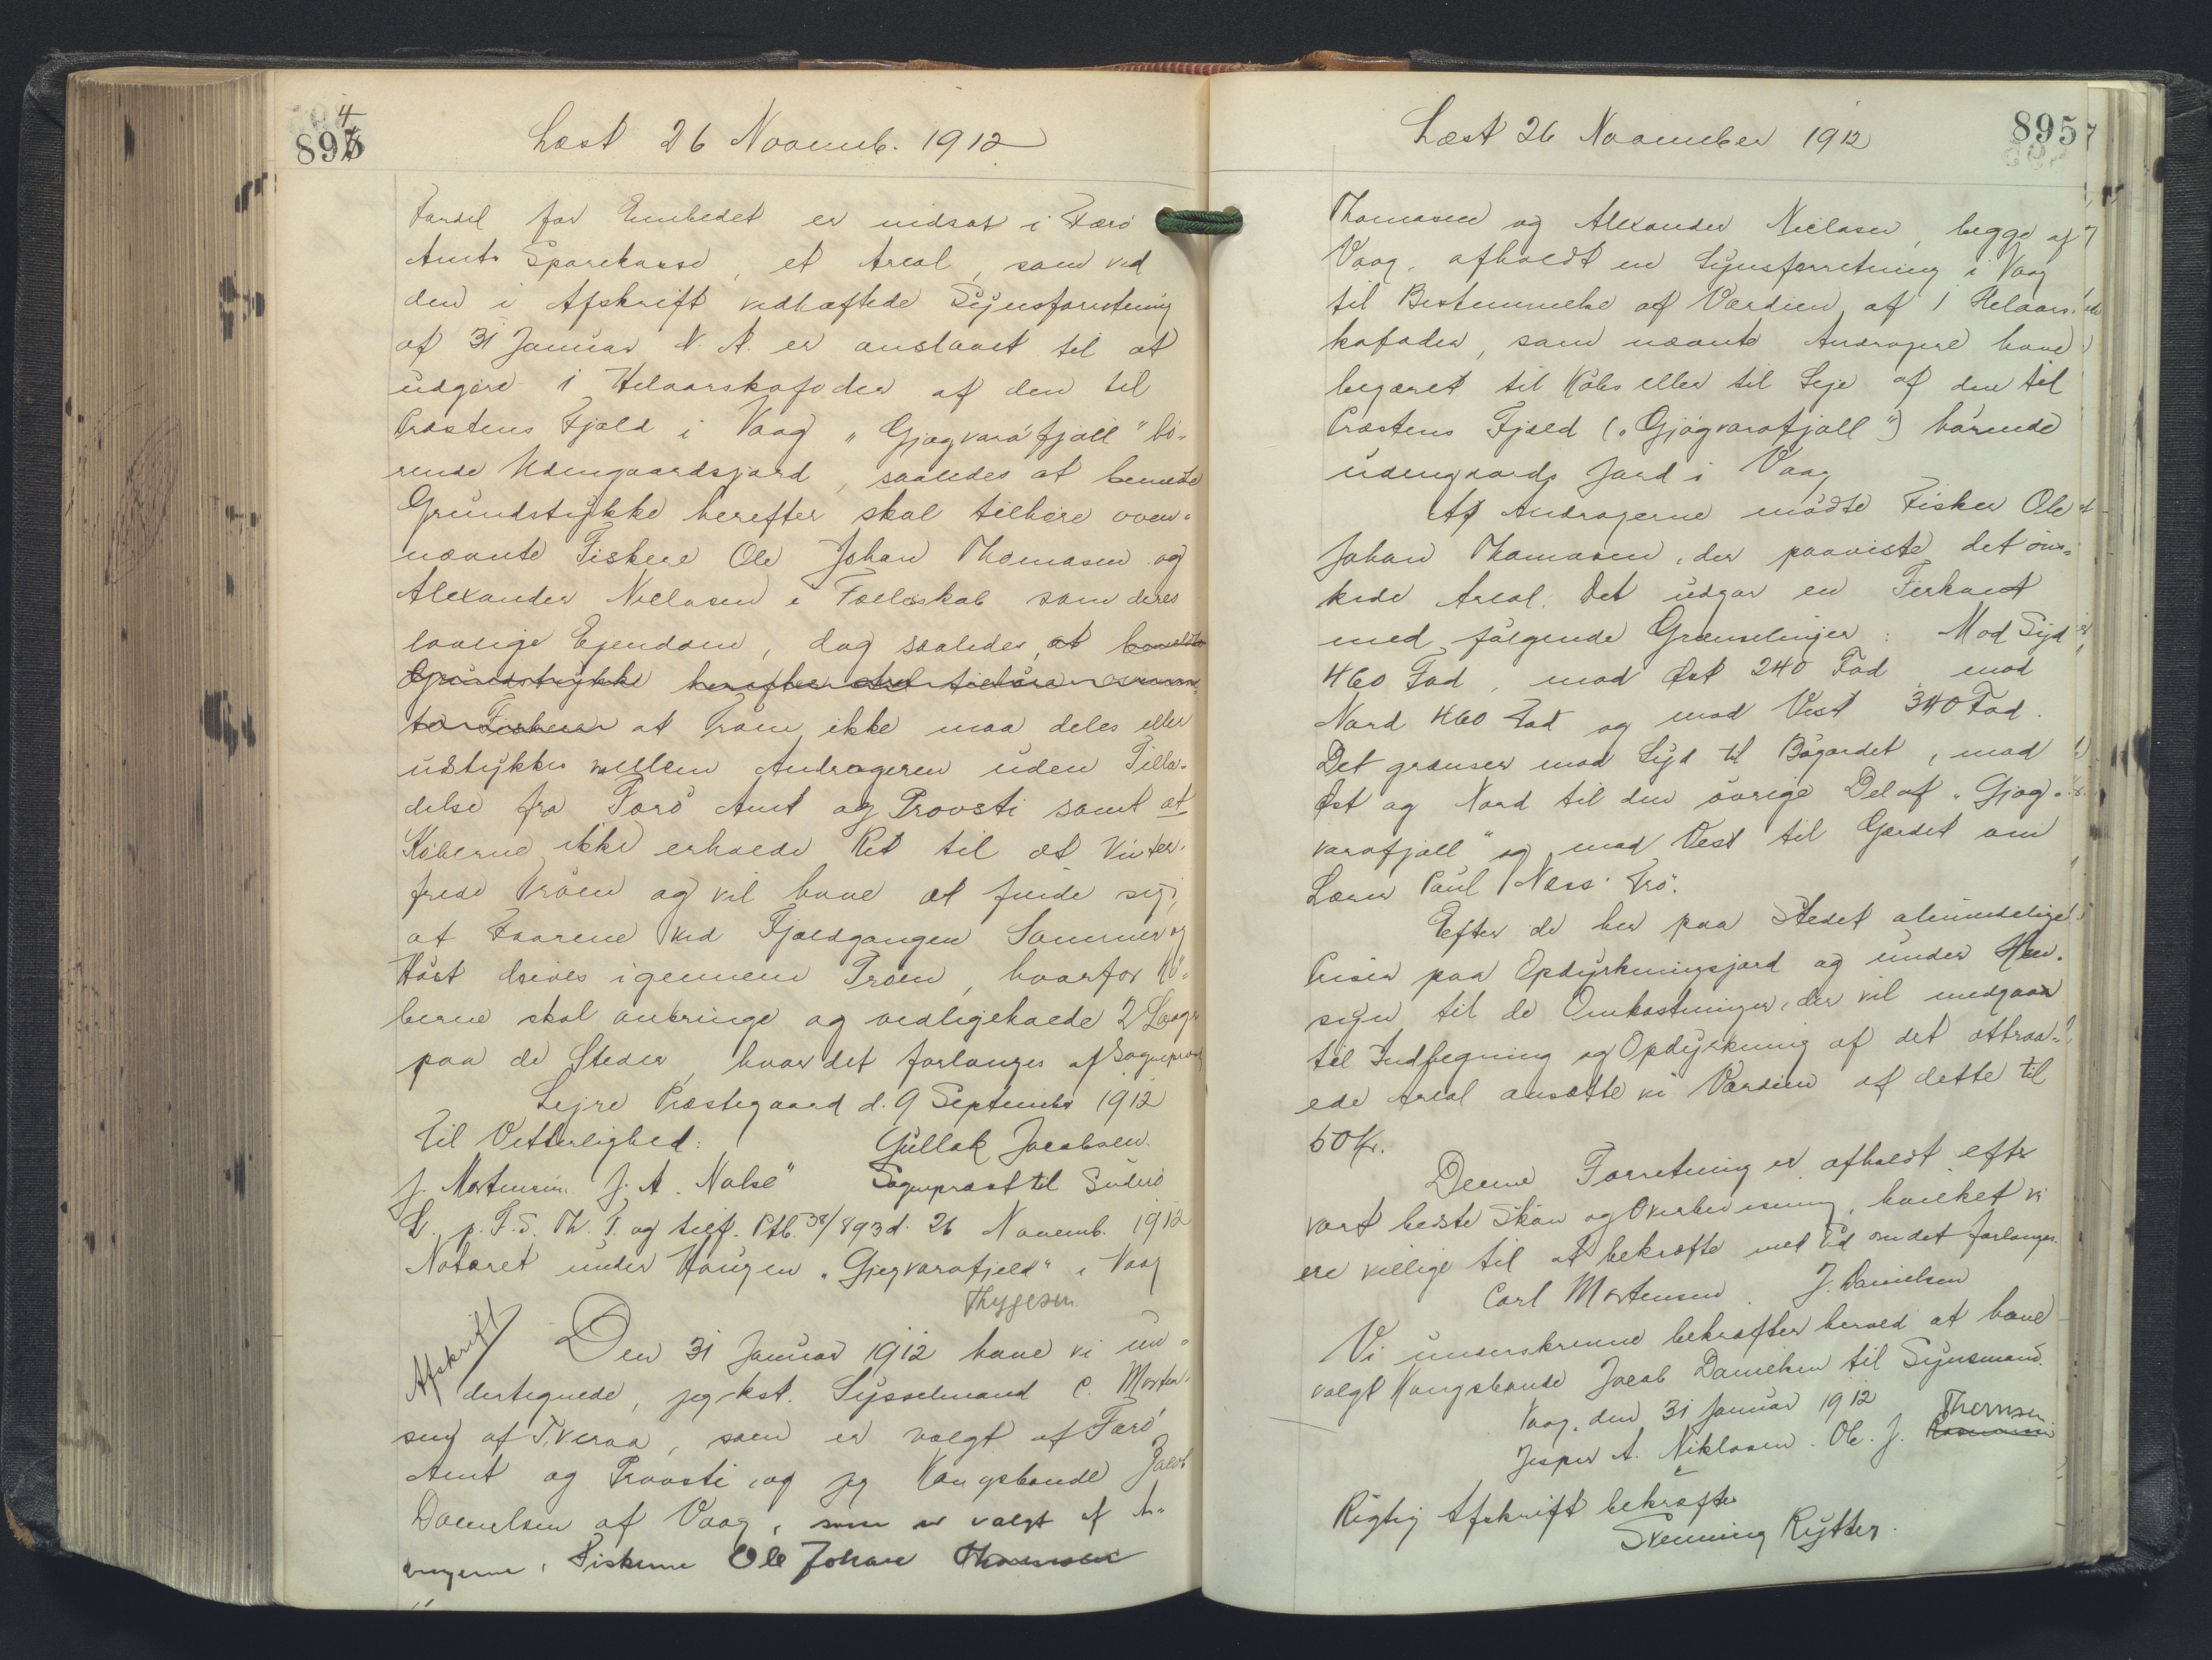 894
Læst 26 Novemb. 1912
Fordel for Embedet er indsat i Færø
Amts Sparekasse, et Areal, som ved
den i Afskrift vedhæftede Synsforretning
af 31 Januar d. A. er anslaaet til at
udgøre 1 Helaarskofoder af den til
Præstens Fjæld i Vaag "Gjøgvaráfjäll" hö-
rende Udengaardsjord, saaledes at bemeldte
Grundstykke herefter skal tilhøre oven-
nævnte Fiskere Ole Johan Thomasen og
Alexander Nielasen i Fællesskab som deres
lovlige Ejendom, dog saaledes, at bemeldte
Grundstykke herefter skal tilhöre ovennævn-
te Fiskere at Tröen ikke maa deles eller
udstykkes mellem Andragerne uden Tilla-
delse fra Færö Amt og Provsti samt at
Køberne ikke erholde Ret til at Vinter-
frede Trøen og vil have at finde sig i,
at Faarene ved Fjældgangen Sommer og
Höst drives igennem Trøen, hvorfor Kö-
berne skal anbringe og vedligeholde 2 Laager
paa de Steder, hvor det forlanges af Sognepræsten
Sejre Præstegaard d. 9 September 1912
Til Vitterlighed: Gullak Jacobsen.
J. Mortensen. J. A. Nolsö Sognepræst til Suderö
L. p. F. S. Th. T. og tilf. Ptb. 38/893 d. 26 Novemb. 1912
Noteret under Haugen "Gjegvarafjeld" i Vaag
Thygesen.
Afskrift
Den 31 Januar 1912 have vi un-
dertegnede, jeg kst. Sysselmand C. Morten-
sen af Tveraa, som er valgt af Færö
Amt og Provsti, og jeg Kongsbonde Jacob
Danielsen af Vaag, som er valgt af An-
dragerne, Fiskerne Ole Johan Thomasen
895
Læst 26 November 1912
Thomasen og Alexander Nielasen, begge af
Vaag, afholdt en Synsforretning i Vaag
til Bestemmelse af Værdien af 1 Helaars-
kofoder, som nævnte Andragere have
begæret til Købs eller til Leje af den til
Præstens Fjæld ("Gjógvarafjall") hørende
udengaards Jord i Vaag
Af Andragerne mødte Fisker Ole
Johan Thomasen, der paaviste det øns-
kede Areal. Det udgør en Firkant
med følgende Grænselinjer: Mod Syd
460 Fod, mod Øst 240 Fod, mod
Nord 460 Fod og mod Vest 340 Fod.
Det grænser mod Syd til Bøgærdet, mod
Øst og Nord til den øvrige Del af "Gjog-
varafjall" og mod Vest til Gærdet om
Lærer Paul Næss' Trö.
Efter de her paa Stedet almindelige
Priser paa Opdyrkningsjord og under Hen-
syn til de Omkostninger, der vil medgaa
til Indhegning og Opdyrkning af det attraa-
ede Areal ansætte vi Værdien af dette til
50 Kr.
Denne Forretning er afholdt efter
vort bedste Skön og Overbevisning, hvilket vi
ere villige til at bekræfte med Ed om det forlanges.
Carl Mortensen. J. Danielsen
Vi underskrevne bekræfter herved at have
valgt Kongsbonde Jacob Danielsen til Synsmand.
Vaag, den 31 Januar 1912
Jesper A. Niklasen. Ole. J. Rasmussen Thomsen
Rigtig Afskrift bekræfter
Svenning Rytter.